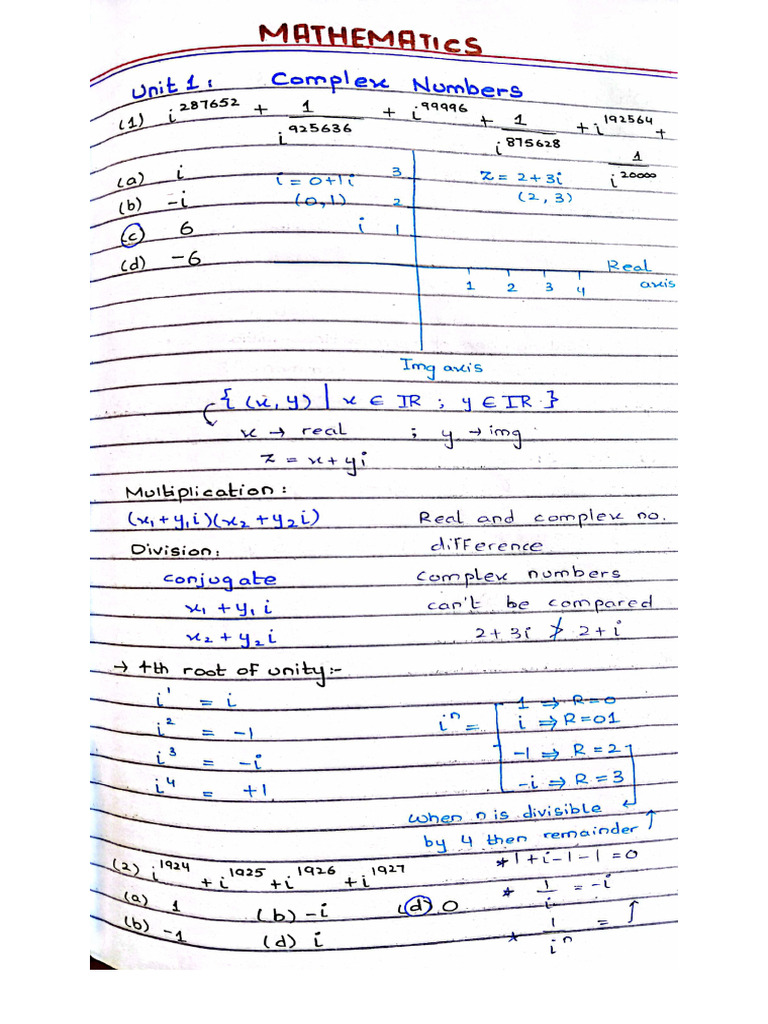 MATHEMATICS
Unit 1: Complex Numbers
(1) i^287652 + 1/i^925636 + i^99996 + 1/i^875628 + i^192564 + 1/i^20000
(a) i
(b) -i
(c) 6
(d) -6
i = 0+1i
(0,1)
i
3
2
1
z = 2+3i
(2,3)
Real axis
1 2 3 4
Img axis
{(x,y) | x ∈ IR ; y ∈ IR}
x → real ; y → img
z = x+yi
Multiplication:
(x₁+y₁i)(x₂+y₂i)
Division:
conjugate
x₁ + y₁ i
x₂ + y₂i
Real and complex no.
difference
complex numbers
can't be compared
2+3i ≯ 2+i
→ 4th root of unity:-
i¹ = i
i² = -1
i³ = -i
i⁴ = +1
iⁿ =
1 ⇒ R=0
i ⇒ R=01
-1 ⇒ R=2
-i ⇒ R=3
when n is divisible
by 4 then remainder
(2) i^1924 + i^1925 + i^1926 + i^1927
(a) 1
(b) -i
(d) 0
(b) -1
(d) i
* 1+i-1-1=0
* 1/i = -i
* 1/iⁿ =